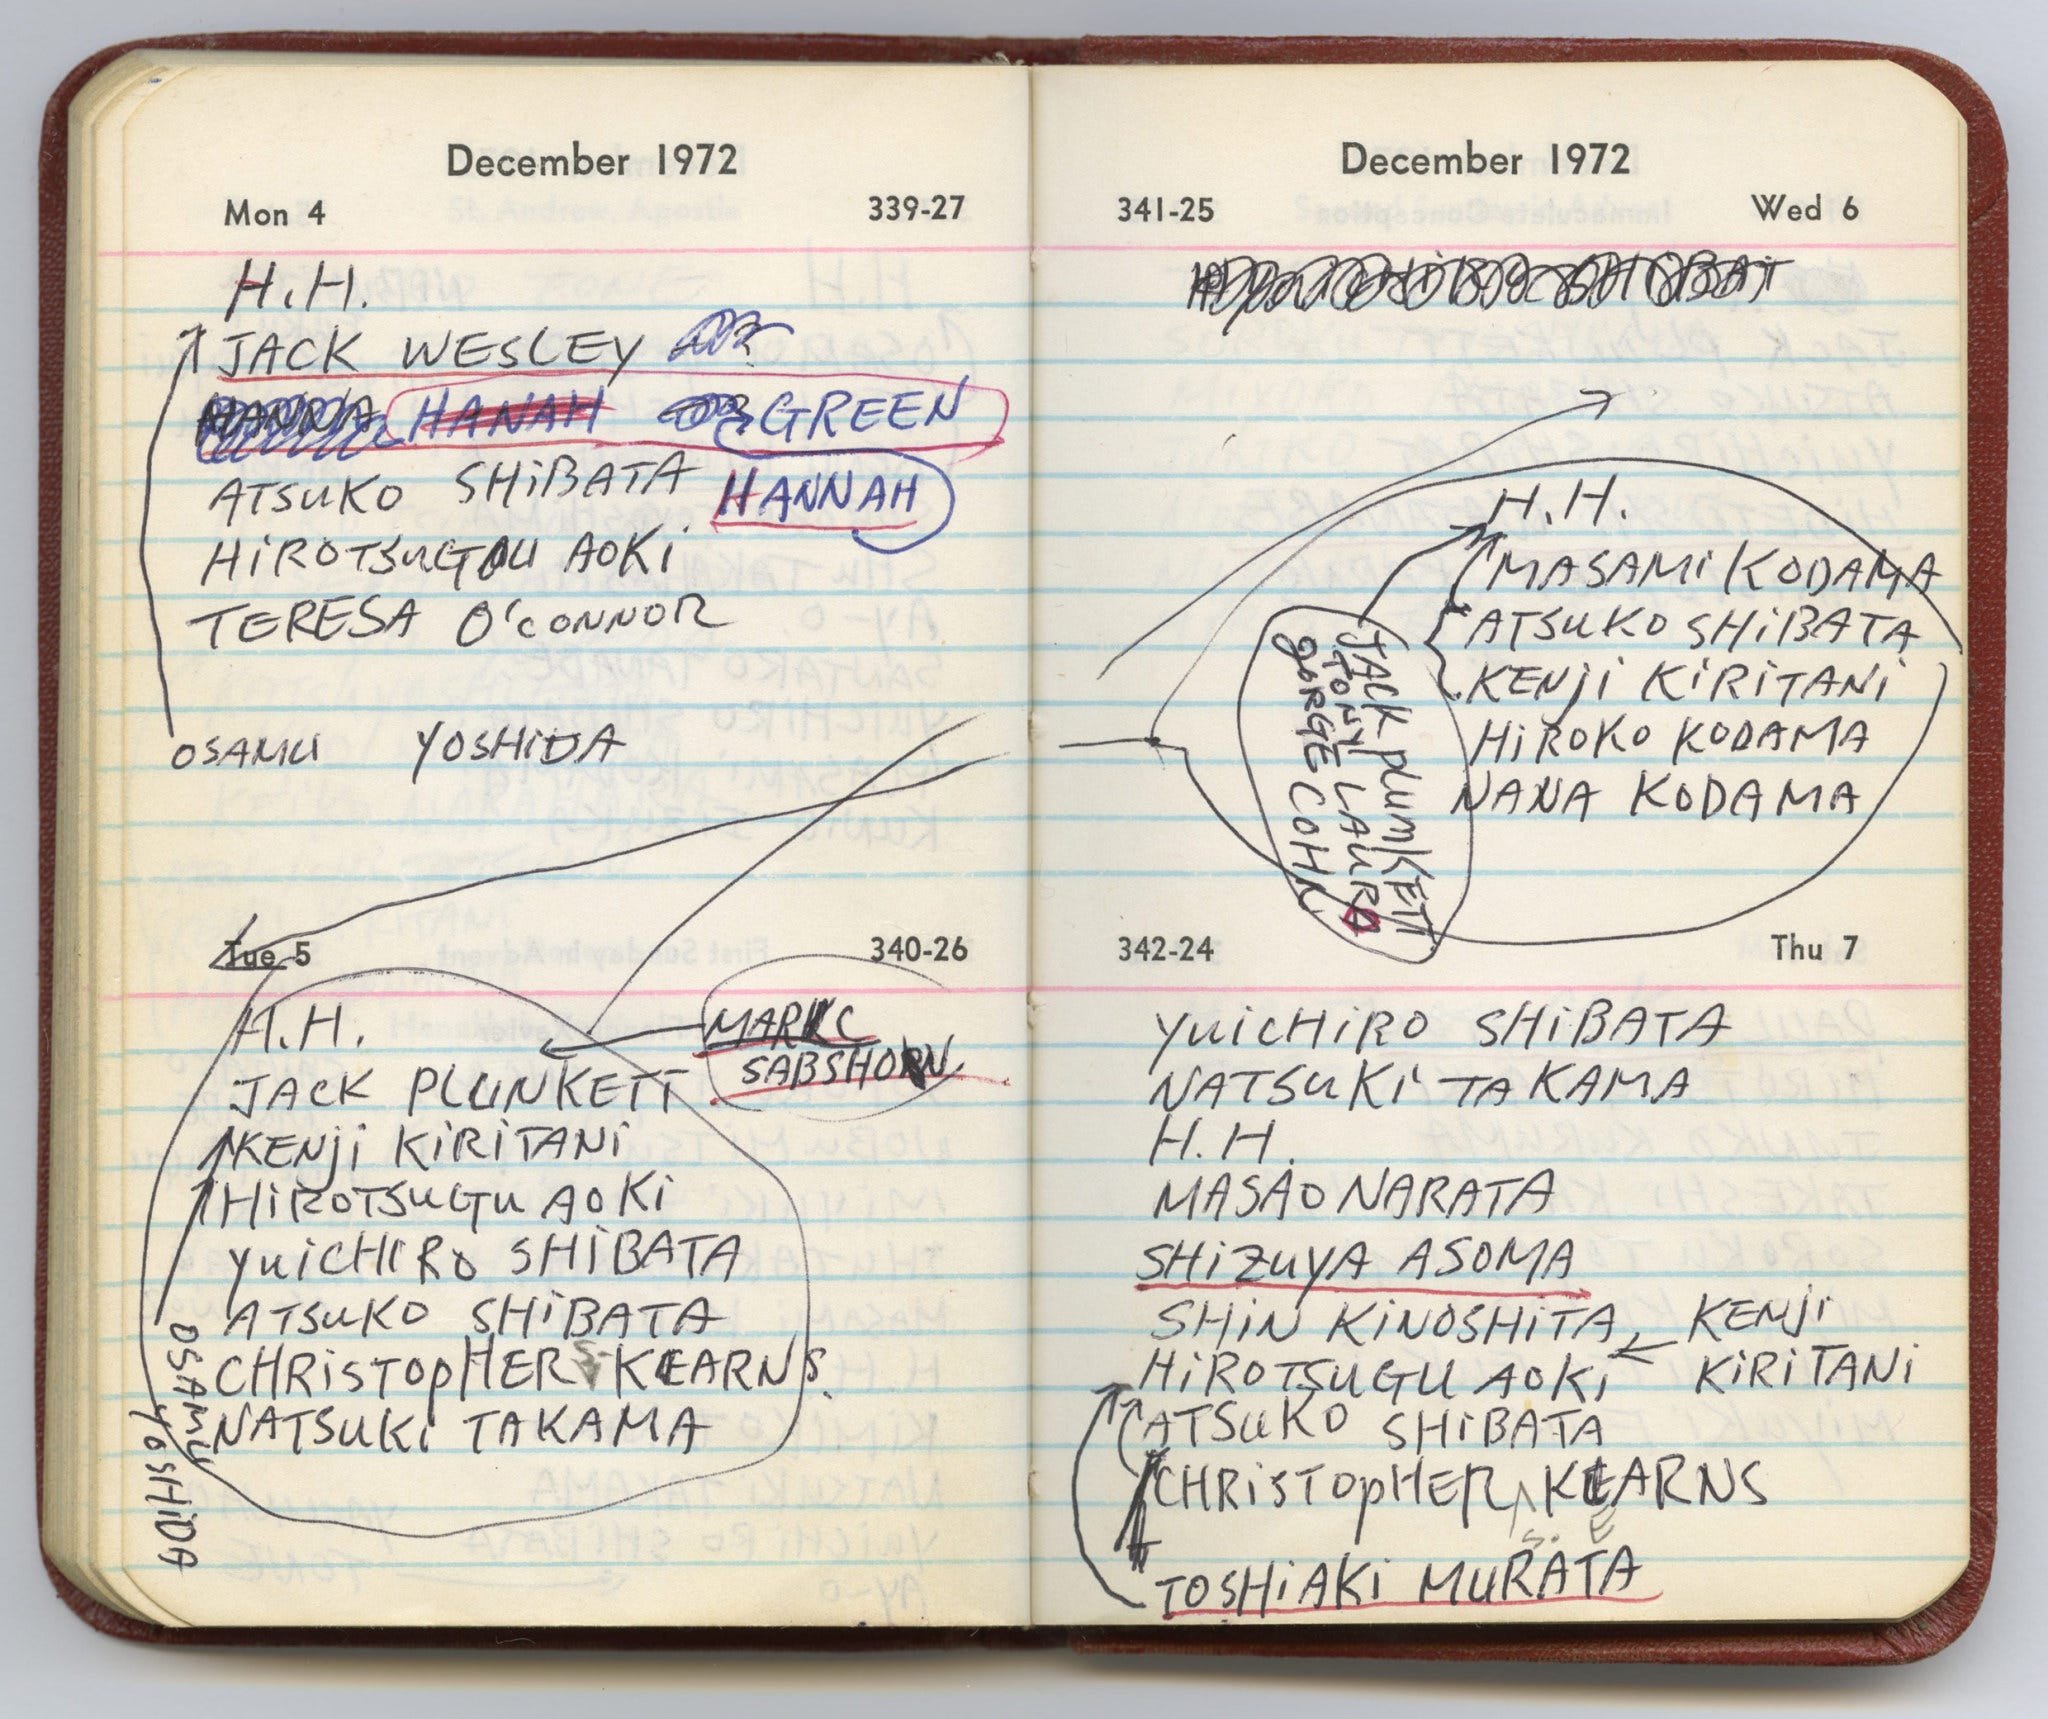 December 1972
Mon 4 339-27
H.H.
JACK WESLEY
HANNA HANAH GREEN
ATSUKO SHiBATA HANNAH
HiROTSUGU AOKi
TERESA O'CONNOR
OSAMU YOSHiDA
Tue 5 340-26
H.H.
MARK C
SABSHORN
JACK PLUNKETT
KENji KiRiTANi
HiROTSUGU AOKi
YUiCHiRo SHiBATA
ATSUKO SHiBATA
CHRiSTOpHER S. KEARNS.
NATSUKi TAKAMA
OSAMU
YOSHiDA
December 1972
341-25 Wed 6
H.H.
MASAMi KODAMA
ATSUKO SHiBATA
KENji KiRiTANi
HiROKO KODAMA
NANA KODAMA
JACK plUMKETT
TONY LAURO
gEORGE COHN
342-24 Thu 7
YUiCHiRO SHiBATA
NATSUKi TAKAMA
H.H.
MASAO NARATA
SHiZUYA ASOMA
SHiN KiNOSHiTA KENji
HiROTSUGU AOKi KiRiTANi
ATSUKO SHiBATA
CHRiSTOpHER KEARNS
S. E
TOSHiAKi MURATA